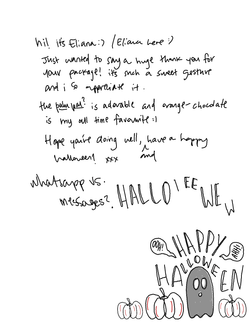 hi! its Eliana :) / (Eliana here :)
Just wanted to say a huge thank you for
your package! its such a sweet gesture
and i so appreciate it.
the is adorable and orange-chocolate
is my all time favourite :)
Hope you're doing well, have a happy
and
halloween! xxx
whatsapp vs.
messages?
HALLOIEEWEW
HAPPY
HALLOWEEN